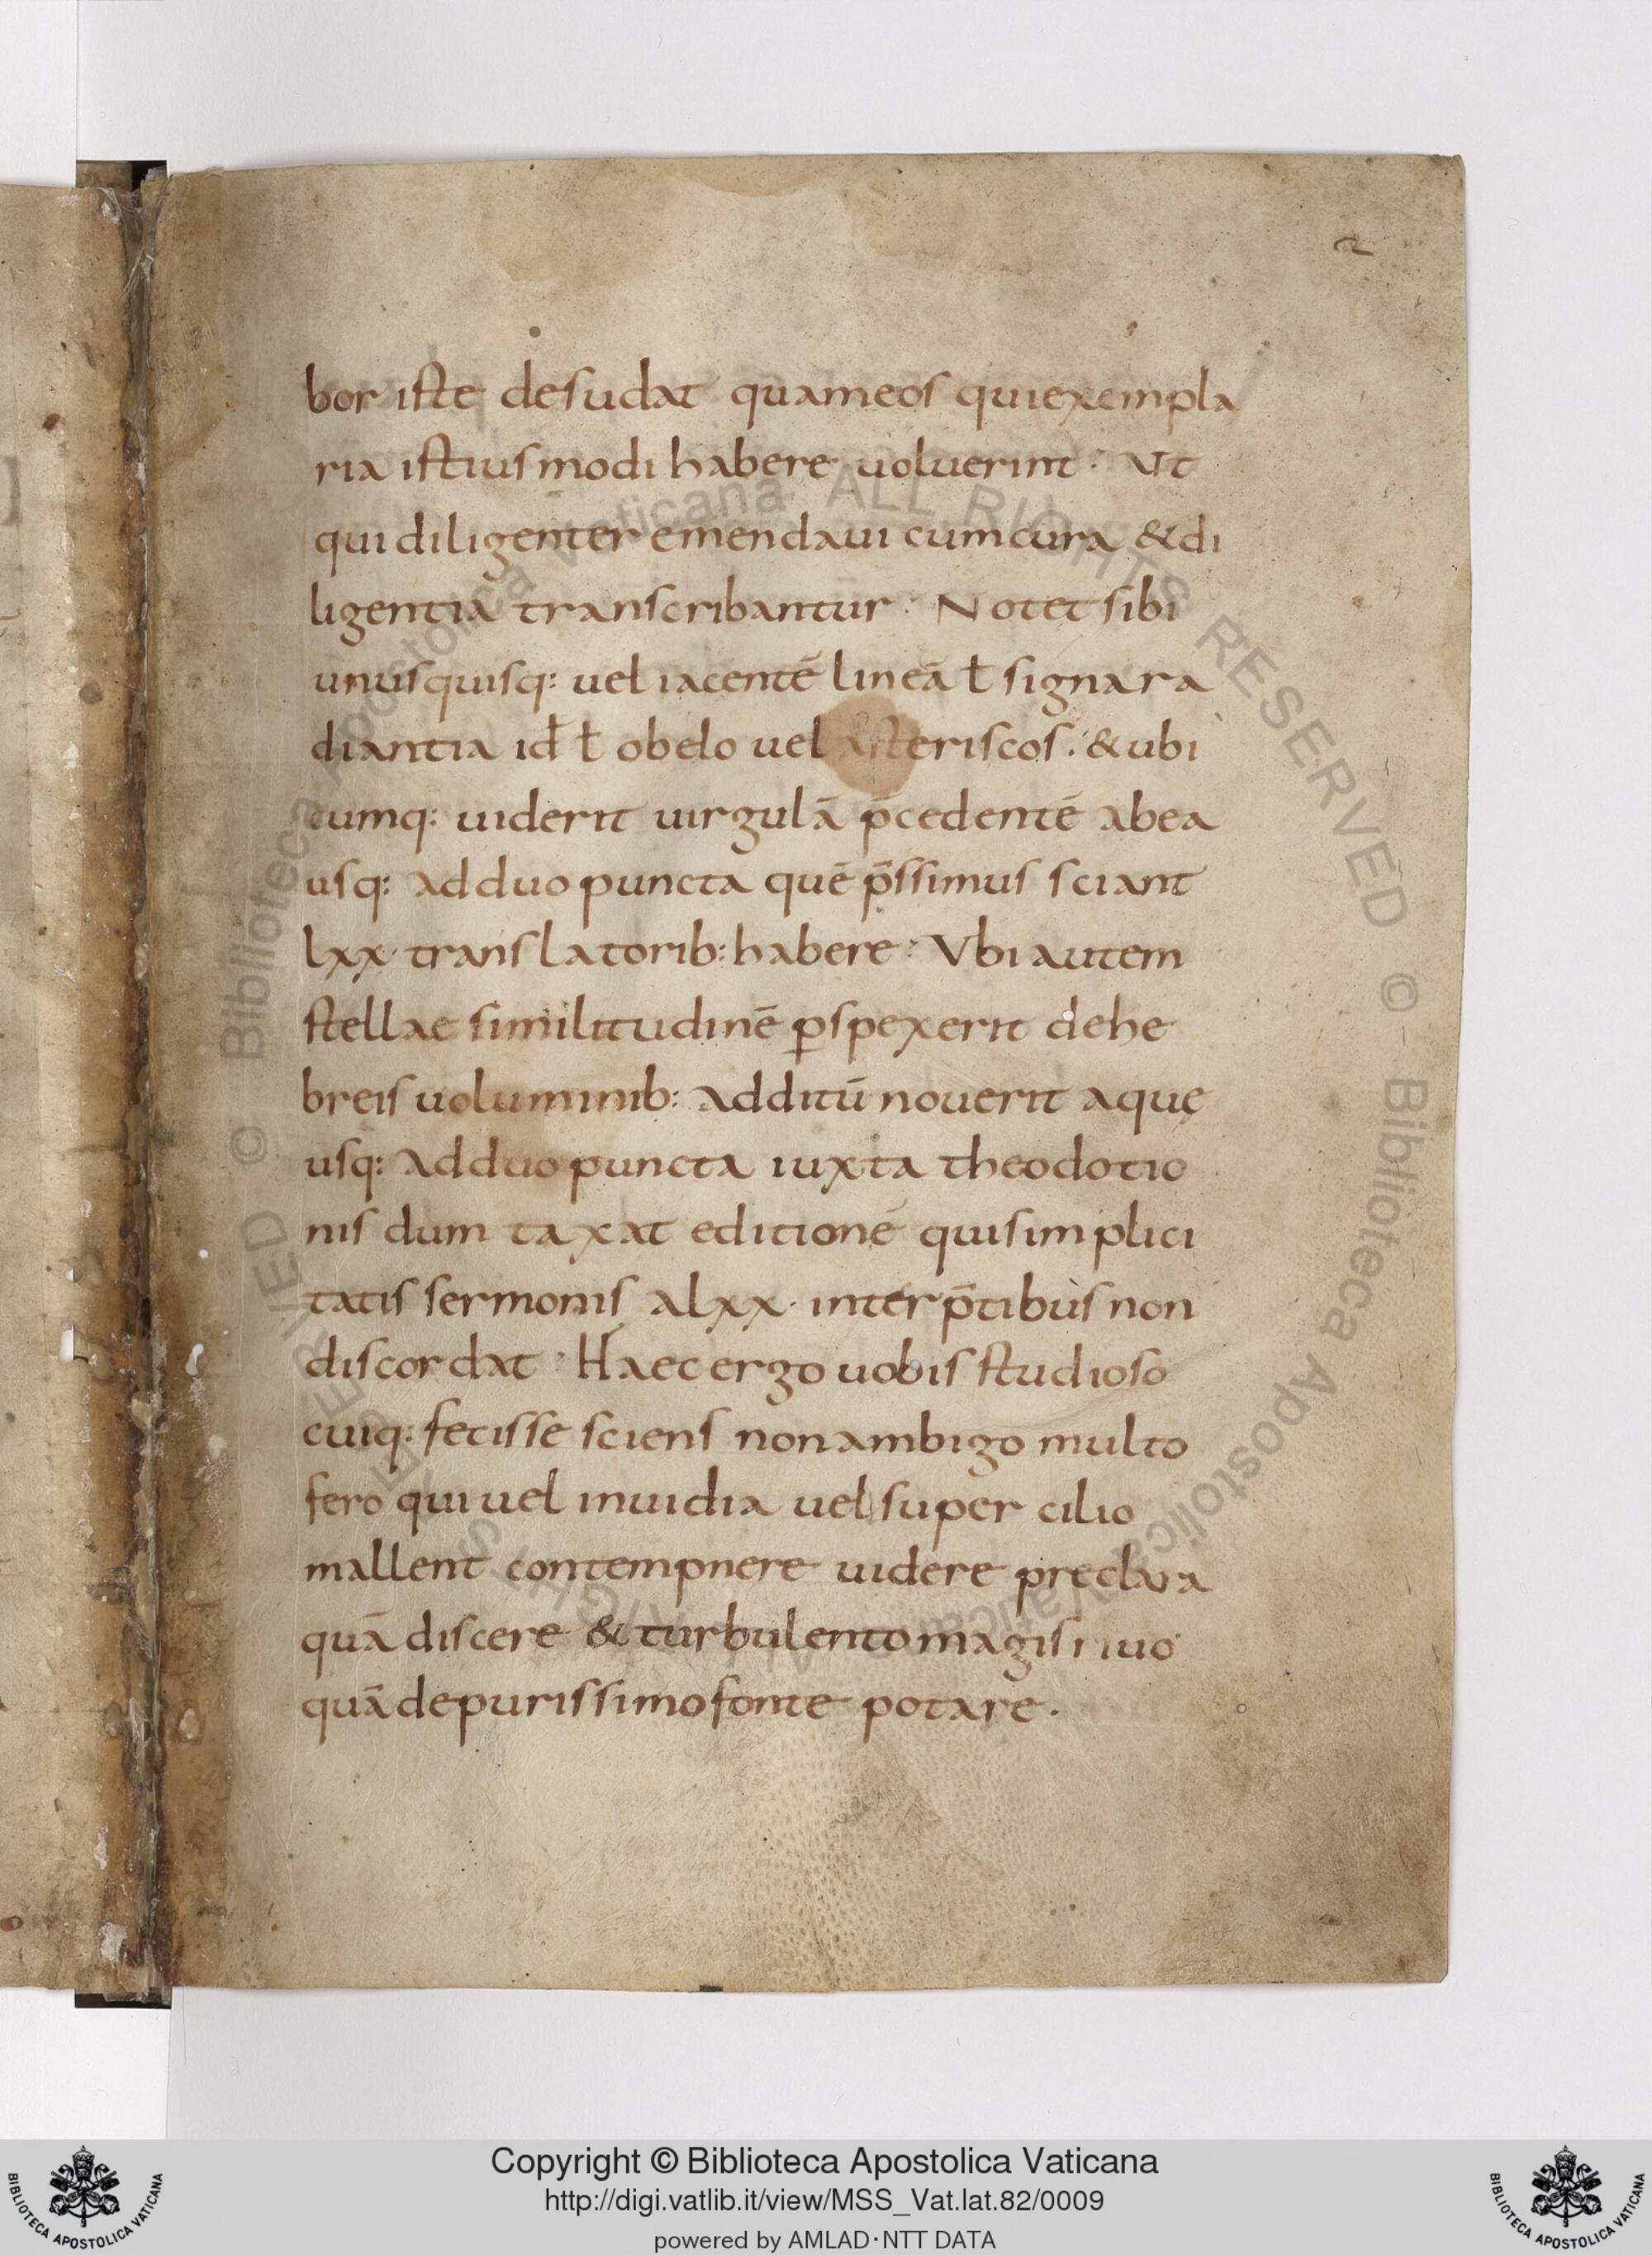 2
bor iste desudat quameos quiexempla
ria istiusmodi habere uoluerint · Ut
qui diligenter emendaui cumcura &di
ligentia transcribantur · Notet sibi
unusquisq: uel iacentē lineā ł signara
diantia id ł obelo uel asteriscos · & ubi
cumq: uiderit uirgulā p̄cedentē abea
usq: adduo puncta quē p̄ssimus sciant
lxx· translatorib: habere · Vbi autem
stellae similitudinē ꝑspexerit dehe
breis uoluminib: additū nouerit aquę
usq: adduo puncta iuxta theodotio
nis dum taxat editionē quisimplici
tatis sermonis alxx· interp̄tibus non
discordat · Haec ergo uobis studioso
cuiq: fecisse sciens nonambigo multo
fero qui uel inuidia uel super cilio
mallent contempnere uidere preclara
quā discere & turbulento magis riuo
quā depurissimo fonte potare ·
© Biblioteca Apostolica Vaticana ALL RIGHTS RESERVED © Biblioteca Apostolica Vaticana ALL RIGHTS RESERVED
Copyright © Biblioteca Apostolica Vaticana
http://digi.vatlib.it/view/MSS_Vat.lat.82/0009
powered by AMLAD·NTT DATA
BIBLIOTECA APOSTOLICA VATICANA
BIBLIOTECA APOSTOLICA VATICANA